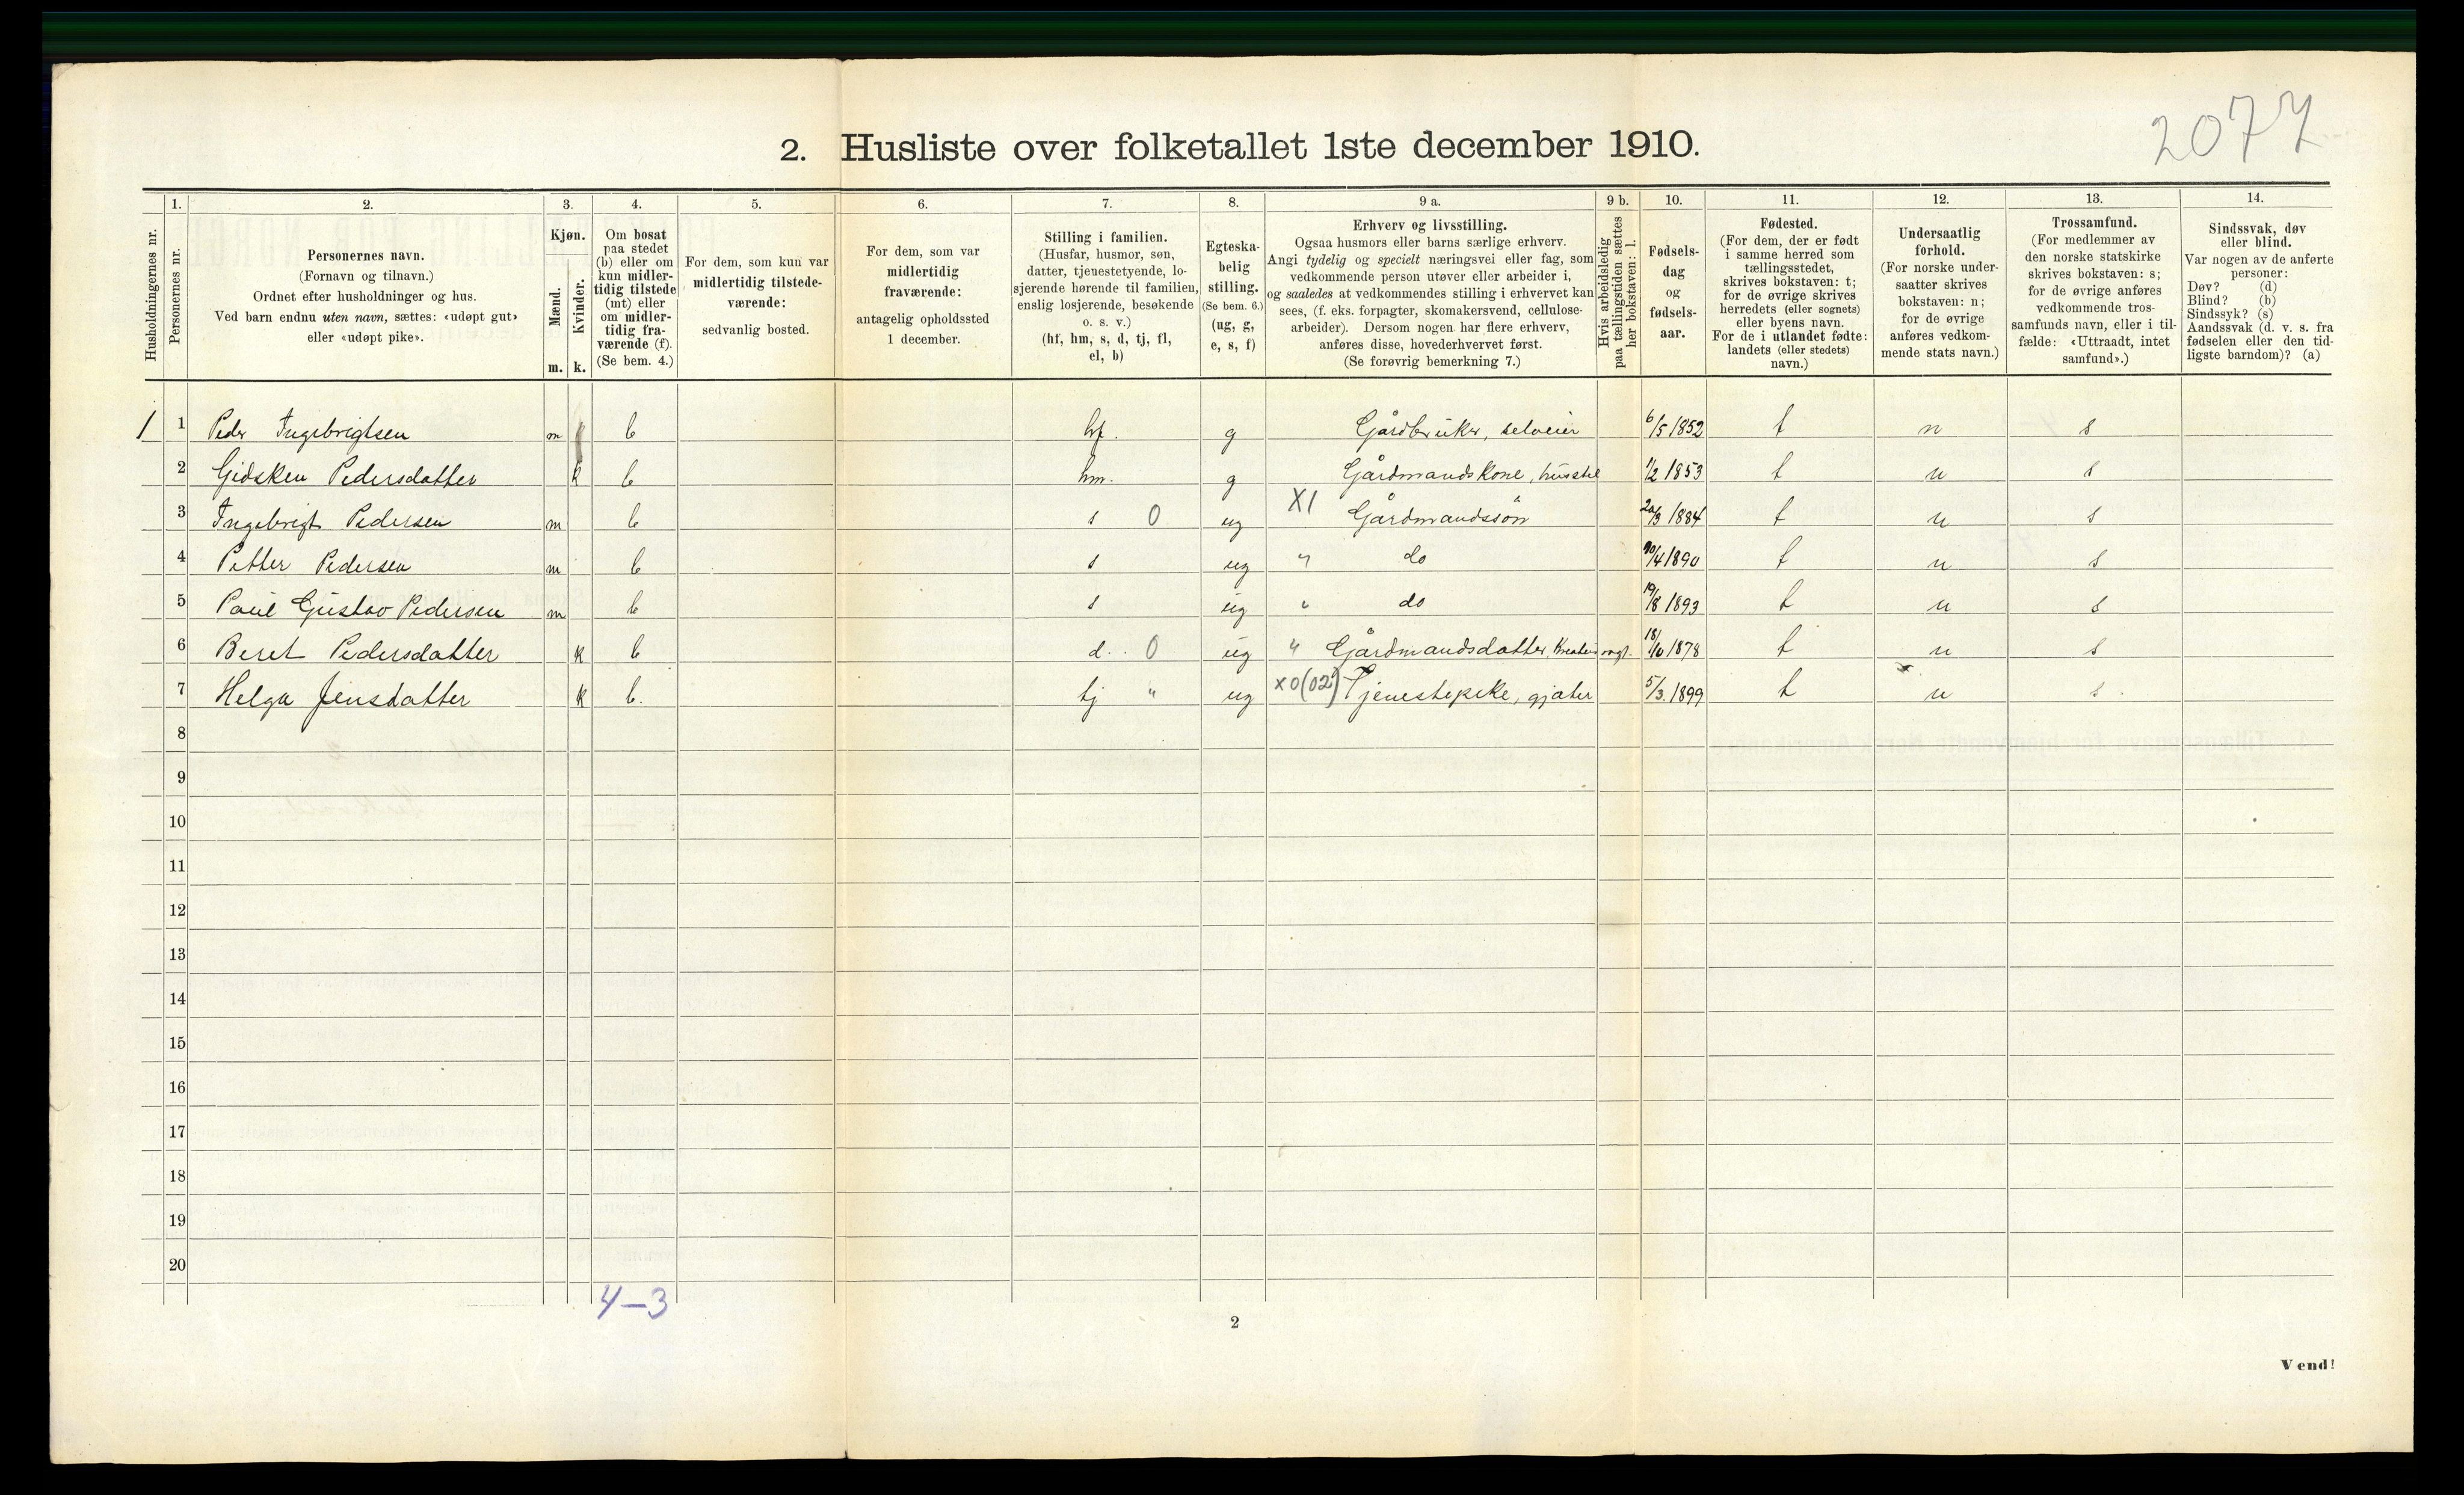 2077
2. Husliste over folketallet 1ste december 1910.
Husholdningernes nr.
1.
Personernes nr.
2.
Personernes navn.
(Fornavn og tilnavn.)
Ordnet efter husholdninger og hus.
Ved barn endnu uten navn, sættes: «udøpt gut»
eller «udøpt pike».
3.
Kjøn.
Mænd.
Kvinder.
m. k.
4.
Om bosat
paa stedet
(b) eller om
kun midler-
tidig tilstede
(mt) eller
om midler-
tidig fra-
værende (f).
(Se bem. 4.)
5.
For dem, som kun var
midlertidig tilstede-
værende:
sedvanlig bosted.
6.
For dem, som var
midlertidig
fraværende:
antagelig opholdssted
1 december.
7.
Stilling i familien.
(Husfar, husmor, søn,
datter, tjenestetyende, lo-
sjerende hørende til familien,
enslig losjerende, besøkende
o. s. v.)
(hf, hm, s, d, tj, fl,
el, b)
8.
Egteska-
belig
stilling.
(Se bem. 6.)
(ug, g,
e, s, f)
9 a.
Erhverv og livsstilling.
Ogsaa husmors eller barns særlige erhverv.
Angi tydelig og specielt næringsvei eller fag, som
vedkommende person utøver eller arbeider i,
og saaledes at vedkommendes stilling i erhvervet kan
sees, (f. eks. forpagter, skomakersvend, cellulose-
arbeider). Dersom nogen har flere erhverv,
anføres disse, hovederhvervet først.
(Se forøvrig bemerkning 7.)
9 b.
Hvis arbeidsledig
paa tællingstiden sættes
her bokstaven: l.
10.
Fødsels-
dag
og
fødsels-
aar.
11.
Fødested.
(For dem, der er født
i samme herred som
tællingsstedet,
skrives bokstaven: t;
for de øvrige skrives
herredets (eller sognets)
eller byens navn.
For de i utlandet fødte:
landets (eller stedets)
navn.)
12.
Undersaatlig
forhold.
(For norske under-
saatter skrives
bokstaven: n;
for de øvrige
anføres vedkom-
mende stats navn.)
13.
Trossamfund.
(For medlemmer av
den norske statskirke
skrives bokstaven: s;
for de øvrige anføres
vedkommende tros-
samfunds navn, eller i til-
fælde: «Uttraadt, intet
samfund».)
14.
Sindssvak, døv
eller blind.
Var nogen av de anførte
personer:
Døv? (d)
Blind? (b)
Sindssyk? (s)
Aandssvak (d. v. s. fra
fødselen eller den tid-
ligste barndom)? (a)
1 1 Peder Ingebrigtsen m b hf. g Gårdbruker, selveier 6/5 1852 t n s
2 Gidsken Pedersdatter k b hm. g Gårdmandskone, husstel 1/2 1853 t n s
3 Ingebrigt Pedersen m b s 0 ug X1 Gårdmandssøn 20/3 1884 t n s
4 Petter Pedersen m b s ug " do /4 1890 t n s
5 Paul Gustav Pedersen m b s ug " do 19/8 1893 t n s
6 Beret Pedersdatter k b d. 0 ug " Gårdmandsdatter, 18/ 1878 t n s
7 Helga Jensdatter k b. tj " ug X0(02) Tjenestepike, gjæter 5/3. 1899 t n s.
8
9
10
11
12
13
14
15
16
17
18
19
20
4-3
2
Vend!